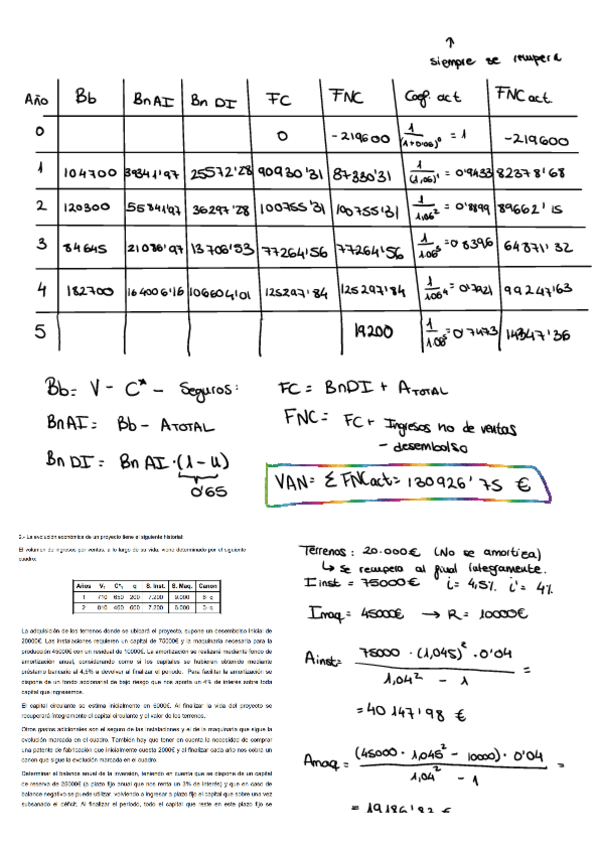 ↑
siempre se recupera
Año Bb BnAI Bn DI FC FNC Coef. act FNC act.
0 0 -219600 1/(1+0'06)⁰ = 1 -219600
1 104700 39341'97 25572'28 90930'31 87330'31 1/(1,06)¹ = 0'9433 82378'68
2 120300 55841'97 36297'28 100755'31 100755'31 1/1,06² = 0'8899 89662'15
3 84645 21086'97 13706'53 77264'56 77264'56 1/1.06³ = 0'8396 64871'32
4 182700 164006'16 106604'01 125297'84 125297'84 1/1.06⁴ = 0'7921 99247'63
5 19200 1/1.06⁵ = 0'7473 14347'36
Bb = V - C* - Seguros:
BnAI = Bb - ATOTAL
Bn DI = Bn AI · (1 - u)
0'65
FC = BnDI + ATOTAL
FNC = FC + Ingresos no de ventas
- desembolso
VAN = Σ FNCact = 130926'75 €
2.- La evolución económica de un proyecto tiene el siguiente historial:
El volumen de ingresos por ventas, a lo largo de su vida, viene determinado por el siguiente
cuadro:
Años V C* q S. Inst. S. Maq. Canon
1 710 650 200 7.200 9.000
2 810 460 600 7.200 6.000
La adquisición de los terrenos donde se ubicará el proyecto, supone un desembolso inicial de
20000€. Las instalaciones requieren un capital de 75000€ y la maquinaria necesaria para la
producción 45000€ con un residual de 10000€. La amortización se realizará mediante fondo de
amortización anual, considerando como si los capitales se hubieran obtenido mediante
préstamo bancario al 4,5% a devolver al finalizar el periodo. Para facilitar la amortización se
dispone de un fondo accionarial de bajo riesgo que nos aporta un 4% de interés sobre todo
capital que ingresemos.
El capital circulante se estima inicialmente en 6000€. Al finalizar la vida del proyecto se
recuperará íntegramente el capital circulante y el valor de los terrenos.
Otros gastos adicionales son el seguro de las instalaciones y el de la maquinaria que sigue la
evolución marcada en el cuadro. También hay que tener en cuenta la necesidad de comprar
una patente de fabricación que inicialmente cuesta 2000€ y al finalizar cada año nos cobra un
canon que sigue la evolución marcada en el cuadro.
Determinar el balance anual de la inversión, teniendo en cuenta que se dispone de un capital
de reserva de 25000€ (a plazo fijo anual que nos renta un 3% de interés) y que en caso de
balance negativo se puede utilizar, volviendo a ingresar a plazo fijo el capital que sobre una vez
subsanado el déficit. Al finalizar el período, todo el capital que reste en este plazo fijo se
Terrenos: 20.000€ (No se amortiza)
↳ Se recupera al final íntegramente.
Iinst = 75000€ i = 4,5% i' = 4%
Imaq = 45000€ → R = 10000€
Ainst = 75000 · (1,045)² · 0'04 / 1,04² - 1 =
= 40147'98 €
Amaq = (45000 · 1,045² - 10000) · 0'04 / 1,04² - 1 =
= 19186'82 €